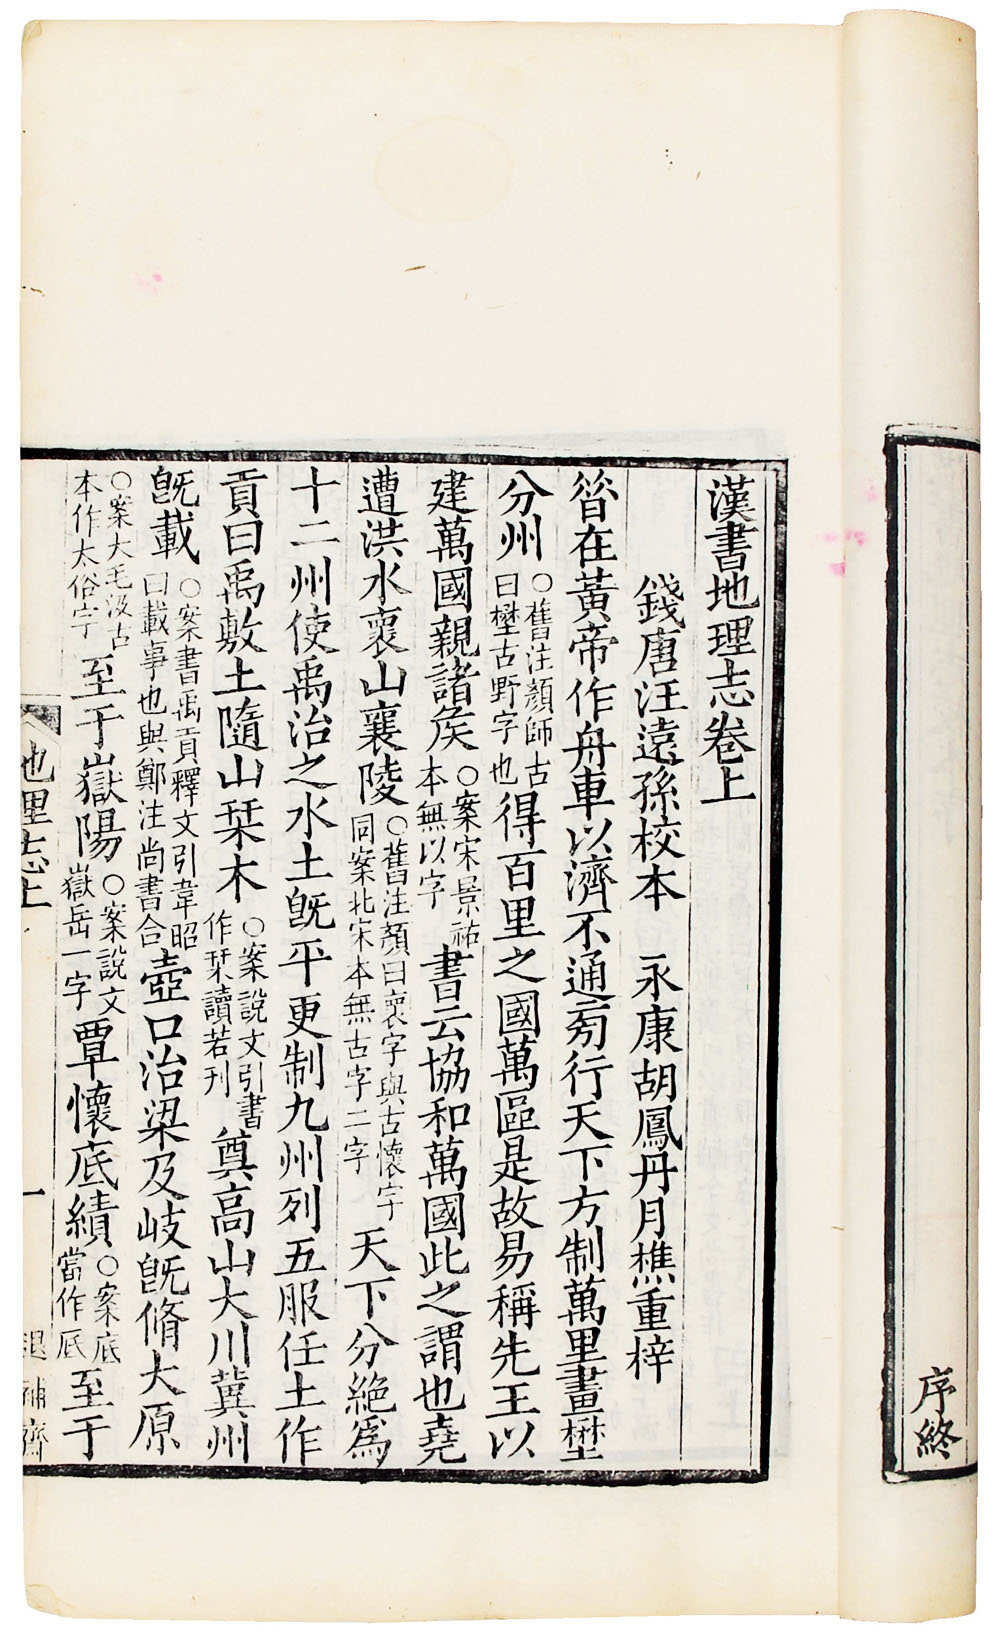 序終
漢書地理志卷上
錢唐汪遠孫校本　永康胡鳳丹月樵重梓
昝在黃帝作舟車以濟不通旁行天下方制萬里畫壄
分州○舊注顏師古曰壄古野字也得百里之國萬區是故易稱先王以
建萬國親諸矦○案宋景祐本無以字書云協和萬國此之謂也堯
遭洪水褱山襄陵○舊注顏曰褱字與古懷字同案北宋本無古字二字天下分絶爲
十二州使禹治之水土旣平更制九州列五服任土作
貢曰禹敷土隨山栞木○案說文引書作栞讀若刊奠高山大川冀州
旣載○案書禹貢釋文引韋昭曰載事也與鄭注尚書合壺口治梁及岐旣脩大原
○案大毛汲古本作太俗字至于嶽陽○案說文嶽岳一字覃懷底績○案底當作厎至于
地理志上　一　退補齋